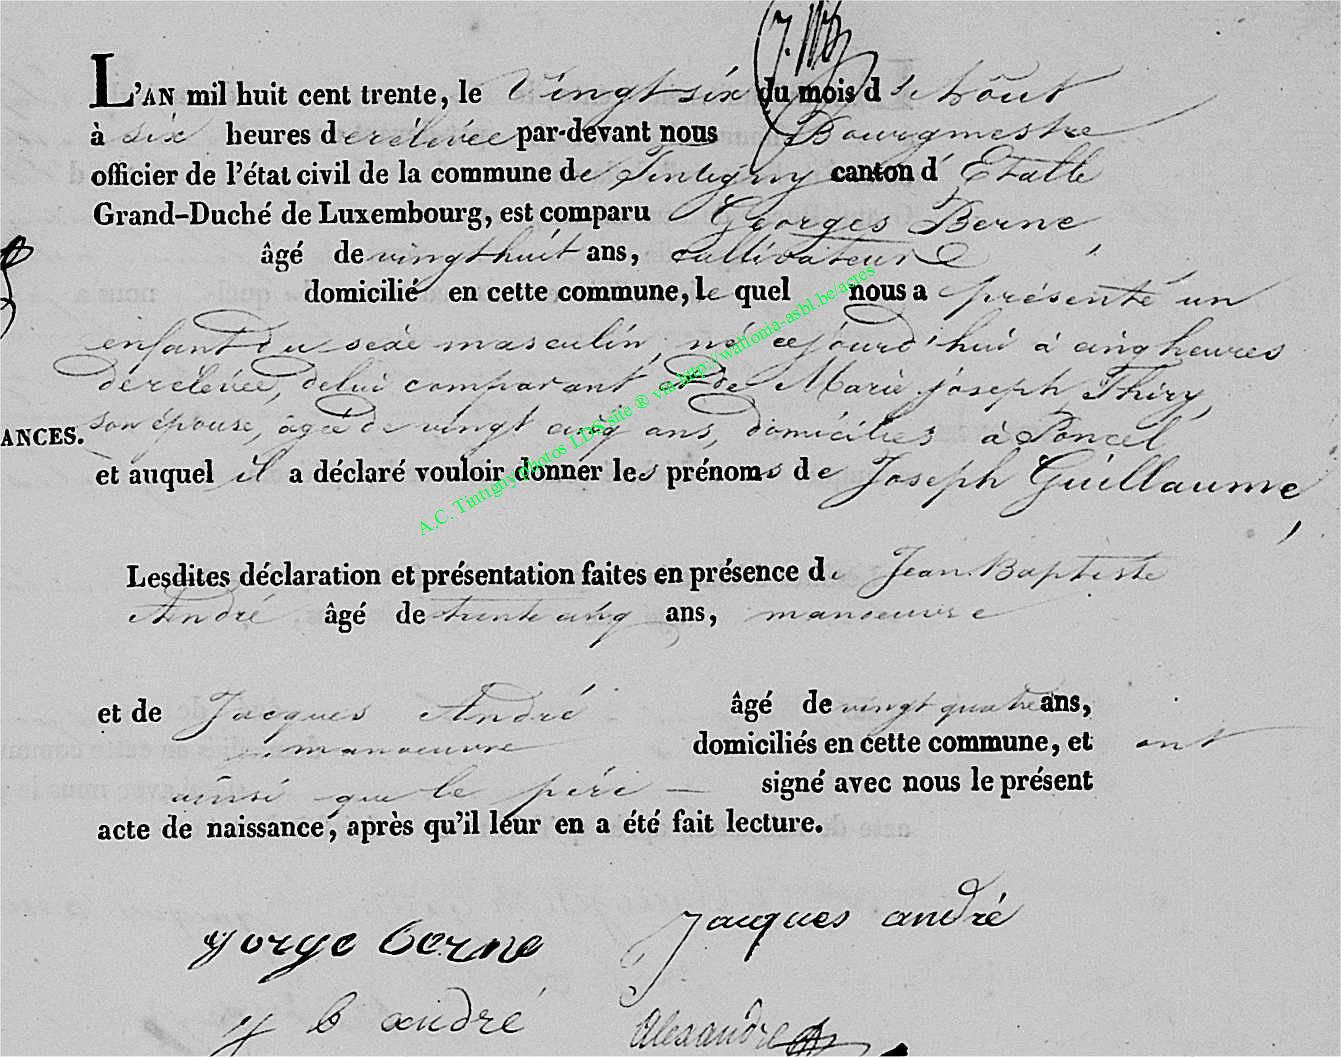 L'AN mil huit cent trente, le vingt six du mois d'août
à six heures de rélévée par-devant nous Bourgmestre
officier de l'état civil de la commune de Tintigny canton d'Etalle
Grand-Duché de Luxembourg, est comparu Georges Berne,
âgé de vingt huit ans, cultivateur
domicilié en cette commune, le quel nous a présenté un
enfant du sexe masculin, né cejourd'hui à cinq heures
de rélévée, de lui comparant et de Marie joseph Thiry,
son épouse, âgée de vingt cinq ans, domiciliés à Poncel
ANCES.
et auquel il a déclaré vouloir donner les prénoms de Joseph Guillaume,
Lesdites déclaration et présentation faites en présence de Jean Baptiste
André âgé de trente cinq ans, manoeuvre
et de Jacques André âgé de vingt quatre ans,
manoeuvre domiciliés en cette commune, et ont
ainsi que le père — signé avec nous le présent
acte de naissance, après qu'il leur en a été fait lecture.
gorge berne jacques andré
j b andré alexandre
A.C. Tintigny photos LDS site ® via http://wallonia-asbl.be/actes